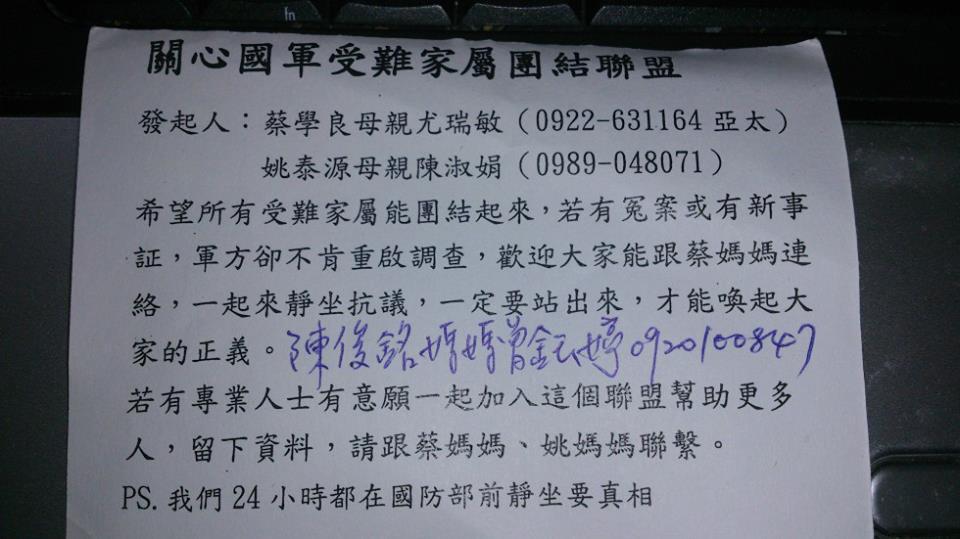 In
關心國軍受難家屬團結聯盟
發起人：蔡學良母親尤瑞敏（0922-631164 亞太）
姚泰源母親陳淑娟（0989-048071）
希望所有受難家屬能團結起來，若有冤案或有新事
証，軍方卻不肯重啟調查，歡迎大家能跟蔡媽媽連
絡，一起來靜坐抗議，一定要站出來，才能喚起大
家的正義。陳俊銘媽媽曾鈺婷0920100847
若有專業人士有意願一起加入這個聯盟幫助更多
人，留下資料，請跟蔡媽媽、姚媽媽聯繫。
PS.我們24小時都在國防部前靜坐要真相